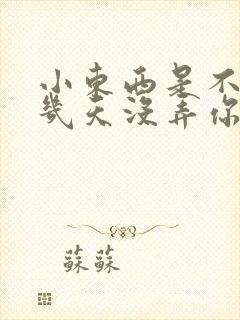 小東西是不
幾天沒弄你
蘇蘇